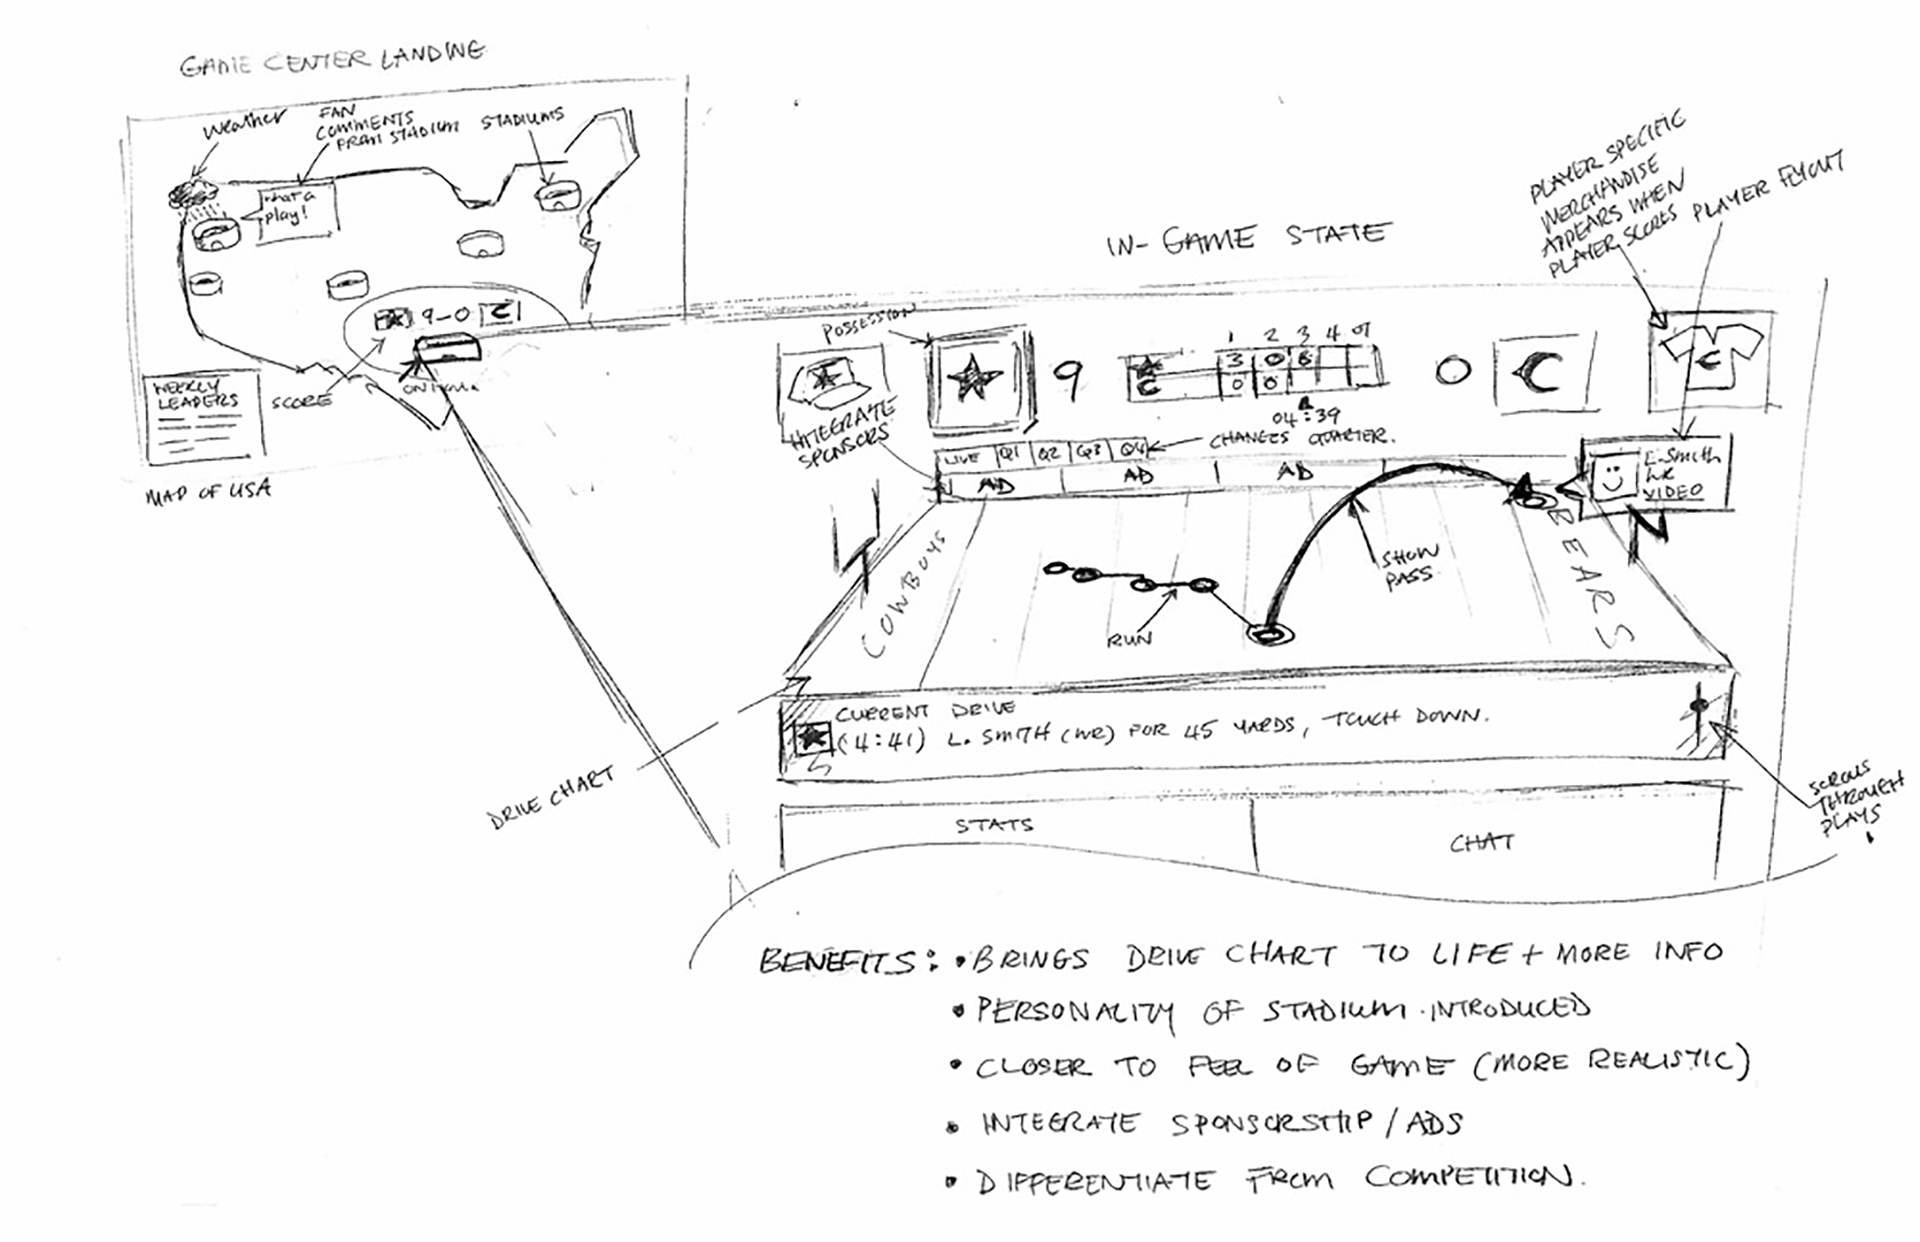 GAME CENTER LANDING
Weather
FAN
COMMENTS
FROM STADIUM
STADIUMS
what a
play!
9-0
C
WEEKLY
LEADERS
SCORE
MAP OF USA
IN-GAME STATE
PLAYER SPECIFIC
MERCHANDISE
APPEARS WHEN
PLAYER SCORES
PLAYER FLYOUT
POSSESSION
9
1 2 3 4 OT
3 0 6
C 0 0
04:39
0
C
C
INTEGRATE
SPONSORS
LIVE Q1 Q2 Q3 Q4
CHANGES QUARTER.
AD AD AD
L. Smith
WR
VIDEO
COWBOYS
BEARS
SHOW
PASS
RUN
CURRENT DRIVE
(4:41) L. SMITH (WR) FOR 45 YARDS, TOUCH DOWN.
DRIVE CHART
SCROLLS
THROUGH
PLAYS
STATS
CHAT
BENEFITS: • BRINGS DRIVE CHART TO LIFE + MORE INFO
• PERSONALITY OF STADIUM INTRODUCED
• CLOSER TO FEEL OF GAME (MORE REALISTIC)
• INTEGRATE SPONSORSHIP/ADS
• DIFFERENTIATE FROM COMPETITION.